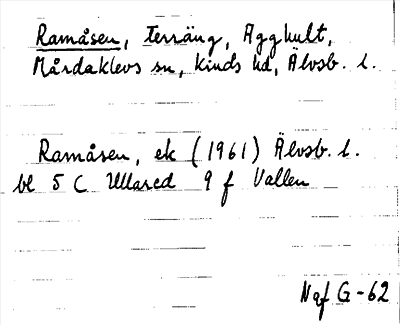 Ramåsen, terräng, Ägghult,
Mårdaklevs sn, Kinds hd, Älvsb. l.
Ramåsen, ek (1961) Älvsb. l.
bl 5 C Ullared 9 f Vallen
Naf G-62